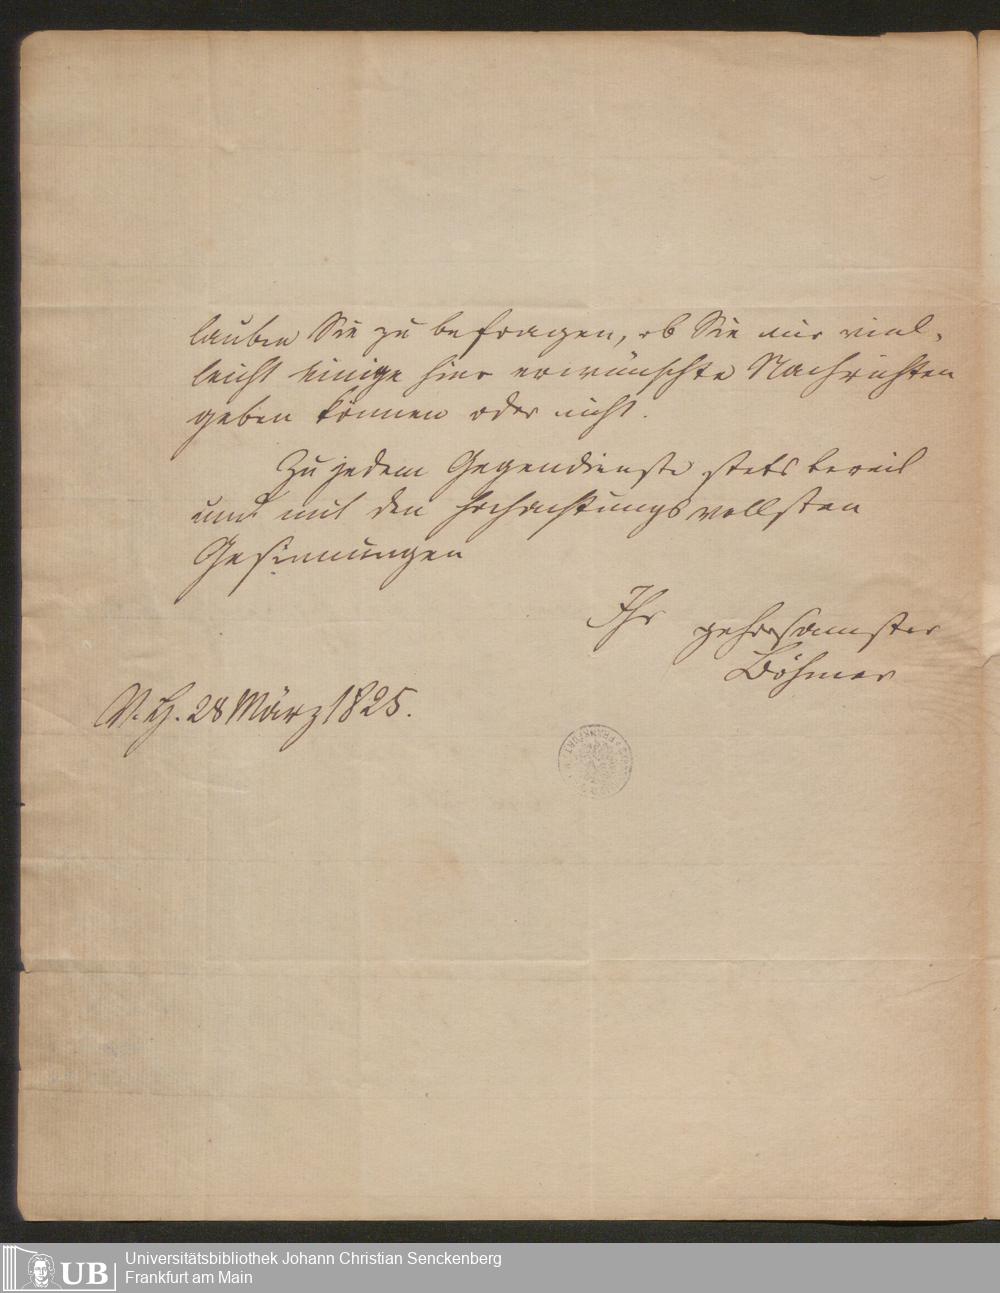 lauben Sie zu befragen, ob Sie mir viel-
leicht einige hier erwünschte Nachrichten
geben können oder nicht.
Zu jedem Gegendienste stets bereit
und mit den hochachtungsvollsten
Gesinnungen
Ihr gehorsamster
Böhmer
V. H. 28 März 1825.
Universitätsbibliothek Johann Christian Senckenberg
Frankfurt am Main
UB